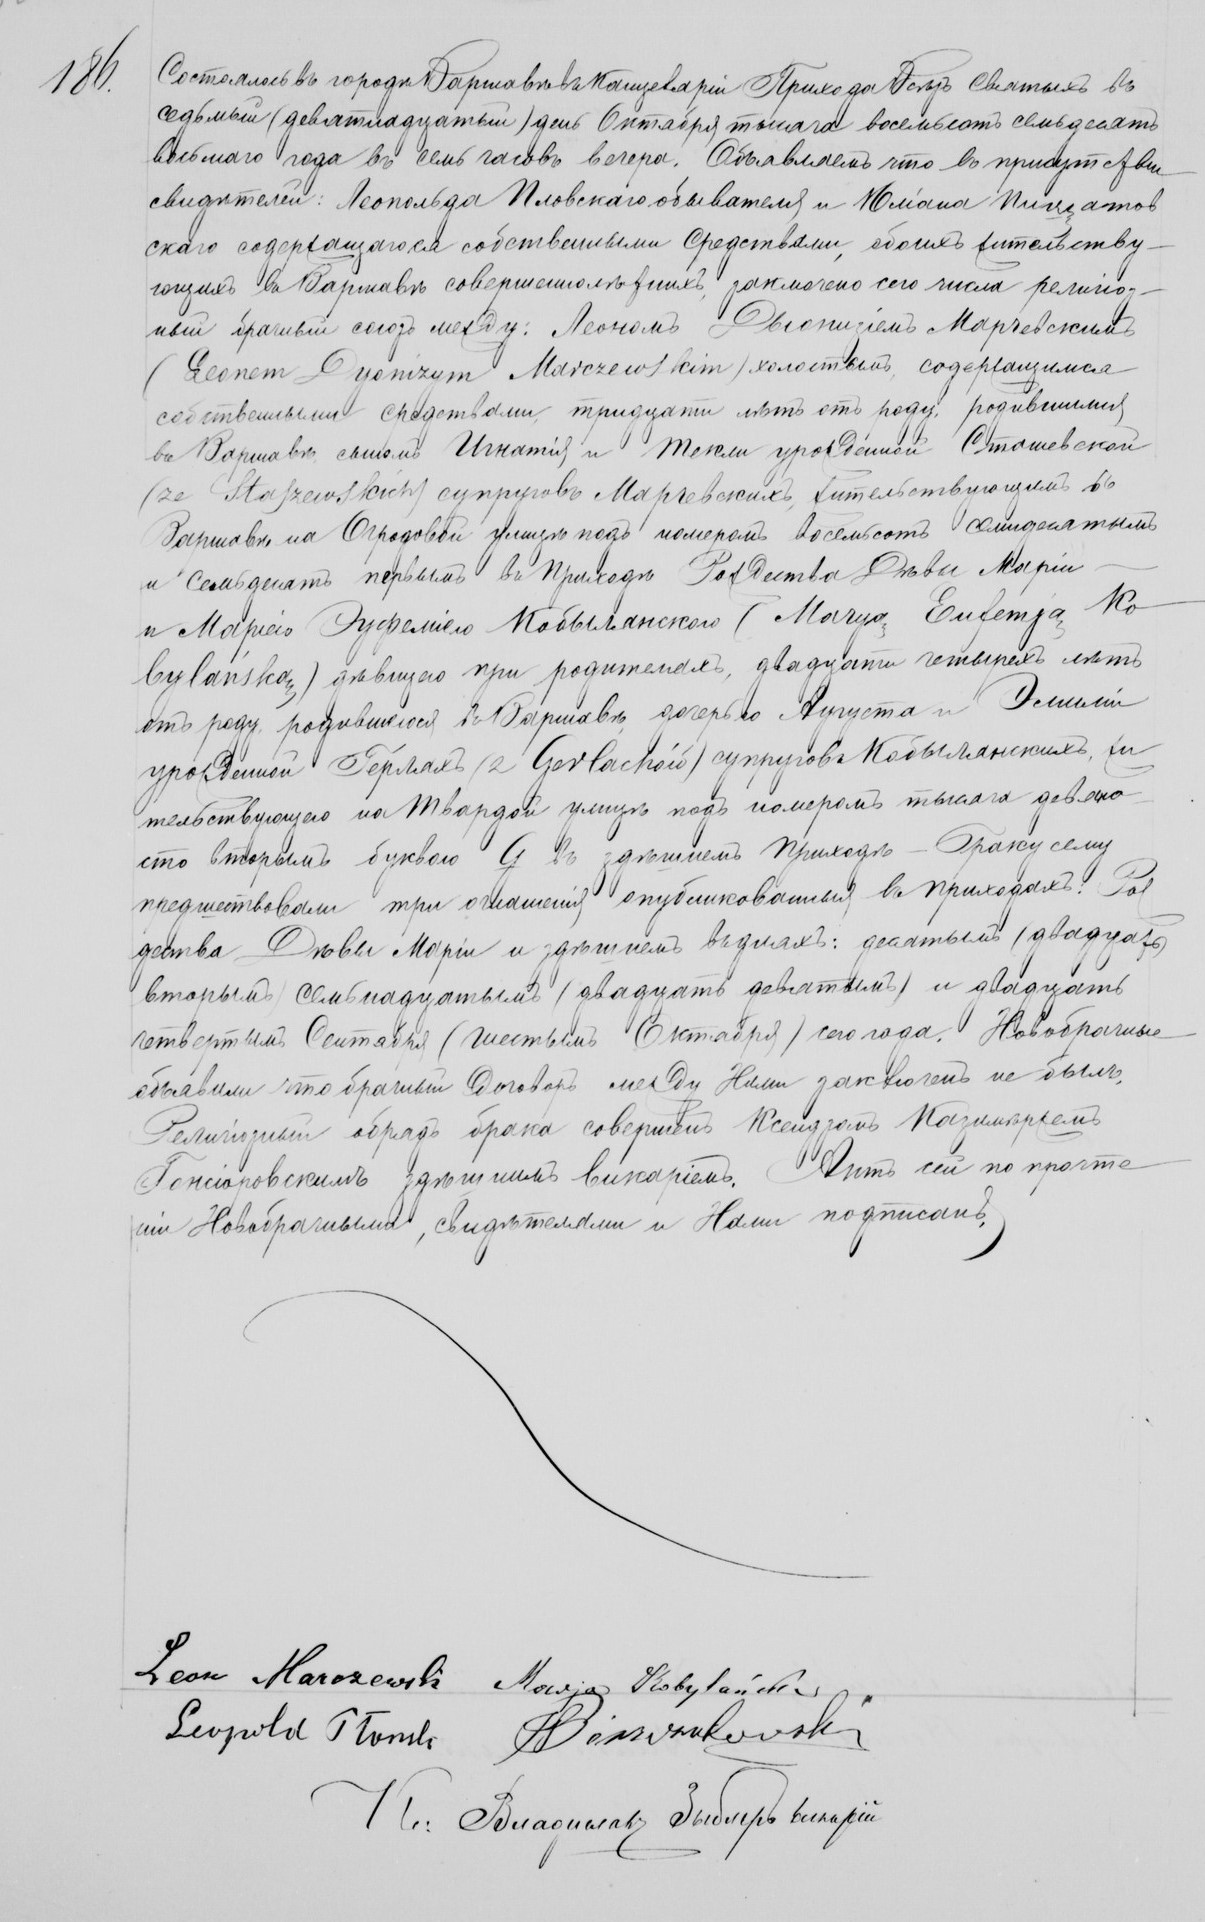 186.
Состоялось въ городѣ Варшавѣ въ Канцеляріи Прихода Всѣхъ Святыхъ въ
седьмый (девятнадцатый) день Октября тысяча восемьсотъ семьдесятъ
восьмаго года въ семь часовъ вечера. Объявляемъ что въ присутствіи
свидѣтелей: Леопольда Пловскаго обывателя и Юліана
скаго содержащагося собственными средствами, обоихъ жительству-
ющихъ въ Варшавѣ совершеннолѣтнихъ, заключено сего числа религіоз-
ный брачный союзъ между: Леономъ Діонизіемъ Марчевскимъ
(Leonem Dyonizym Marczewskim) холостымъ, содержащимся
собственными средствами, тридцати лѣтъ отъ роду, родившимся
въ Варшавѣ, сыномъ Игнатія и Текли урожденной Сташевской
(ze Staszewskich) супруговъ Марчевскихъ, жительствующимъ въ
Варшавѣ на Огродовой улицѣ подъ номеромъ восемьсотъ семидесятымъ
и семьдесятъ первымъ въ Приходѣ Рождества Дѣвы Маріи —
и Маріею Эуфеміею Кобылянскою (Maryą Eufemją Ko-
bylańską) дѣвицею при родителяхъ, двадцати четырехъ лѣтъ
отъ роду, родившеюся въ Варшавѣ, дочерью Августа и Эмиліи
урожденной Герляхъ (z Gerlachów) супруговъ Кобылянскихъ, жи
тельствующею на Твардой улицѣ подъ номеромъ тысяча девяно
сто вторымъ буквою G въ здѣшнемъ Приходѣ — Браку сему
предшествовали три оглашенія опубликованныя въ Приходахъ: Рож
дества Дѣвы Маріи и здѣшнемъ въ дняхъ: десятымъ (двадцать
вторымъ) семнадцатымъ (двадцать девятымъ) и двадцать
четвертымъ Сентября (шестымъ Октября) сего года. Новобрачные
объявили что брачный договоръ между Ними заключенъ не былъ.
Религіозный обрядъ брака совершенъ Ксендзомъ Казимѣремъ
Гонсіоровскимъ здѣшнимъ викаріемъ. Актъ сей по прочте
ніи Новобрачными, свидѣтелями и Нами подписанъ.
Leon Marczewski Marja Kobylańska
Leopold Płowski
Кс: Владиславъ викарій